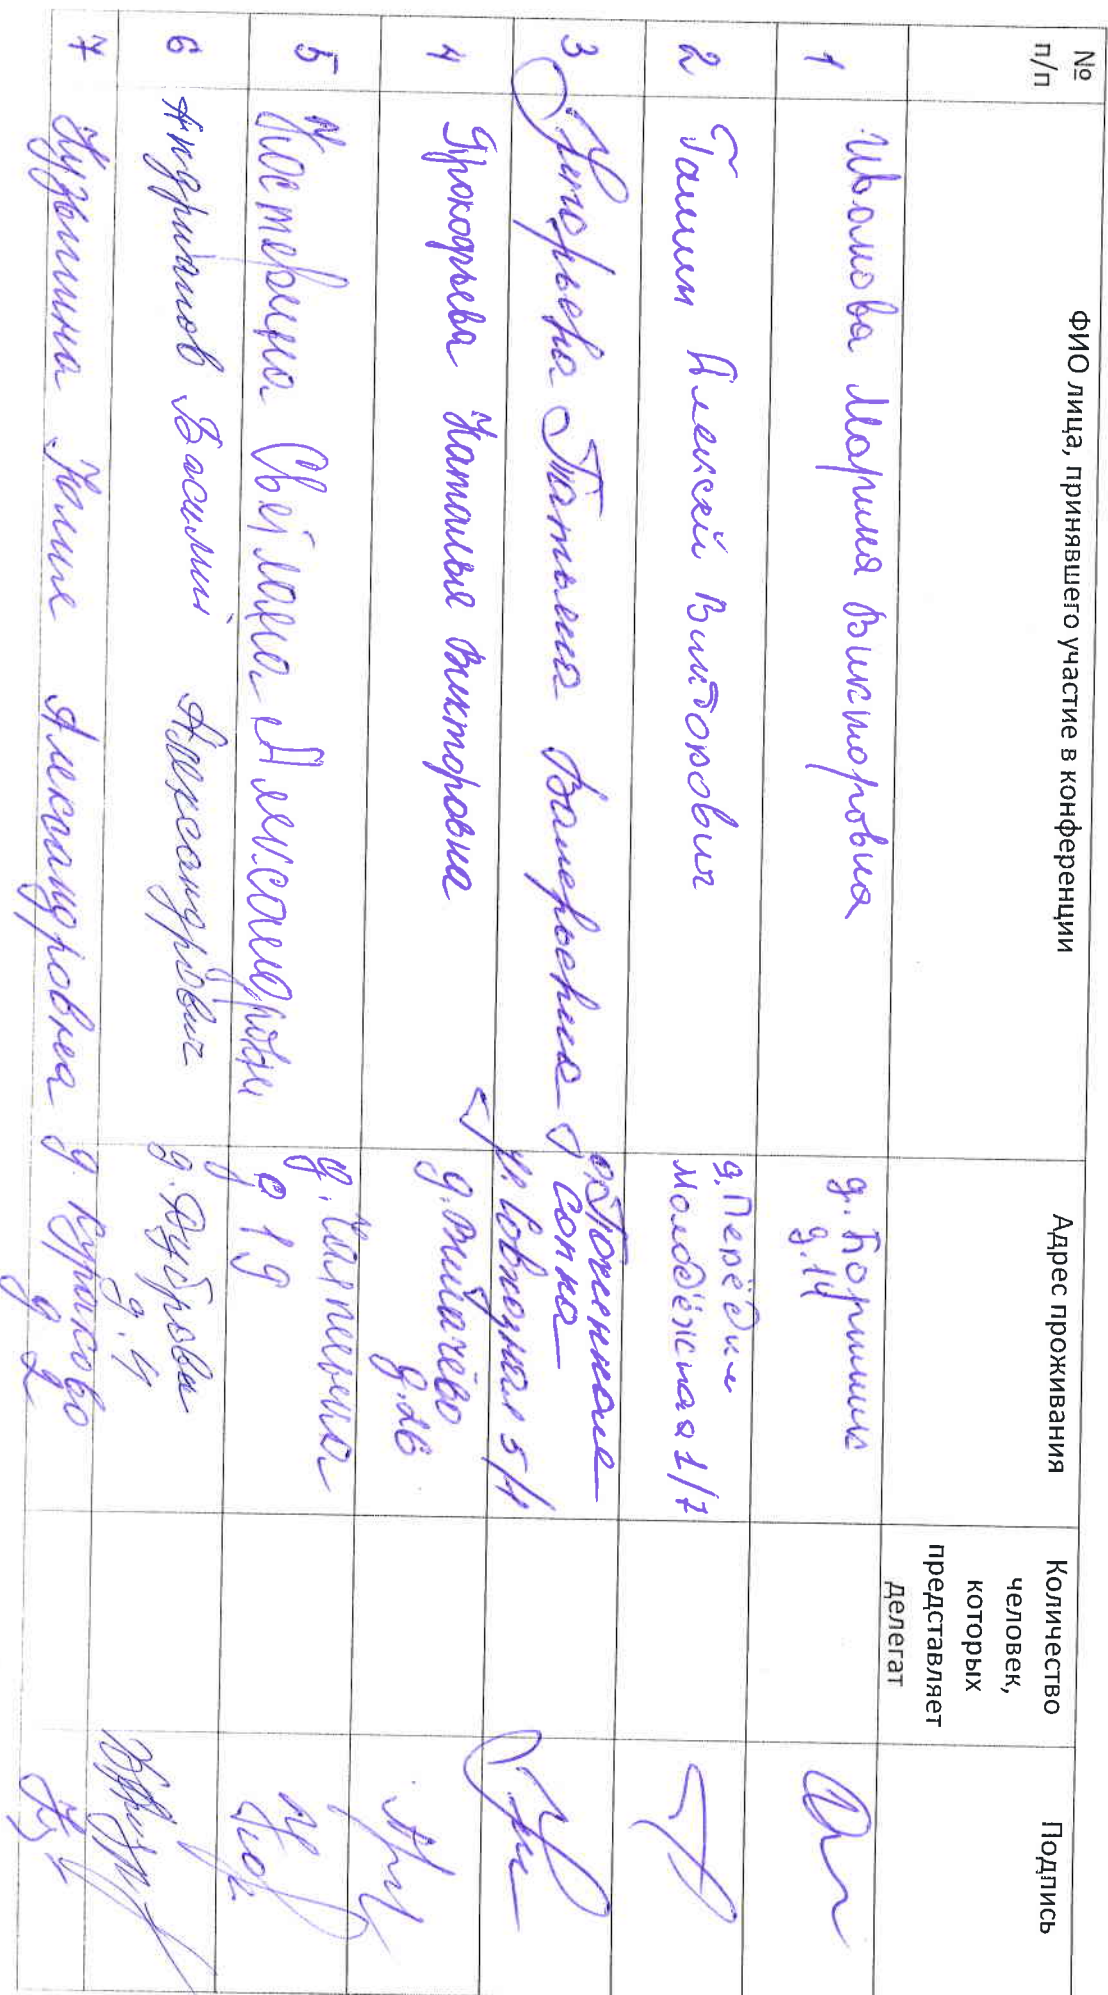 №
п/п
ФИО лица, принявшего участие в конференции
Адрес проживания
Количество
человек,
которых
представляет
делегат
Подпись
1
Иванова Мария Викторовна
д. Боршик
д. 14
2
Галкин Алексей Викторович
д. Перёдки
Молодёжная 1/7
3
Татьяна Валерьевна
Сопка
ул. Совхозная 5/4
4
Прокофьева Наталья Викторовна
д. Волчачёво
д. 26
5
Костерина Светлана Александровн
д.
д 19
6
Андрианов Василий Александрович
д. Дубровы
д. 4
7
Кузьмина Юлия Александровна
д. Курасово
д 2